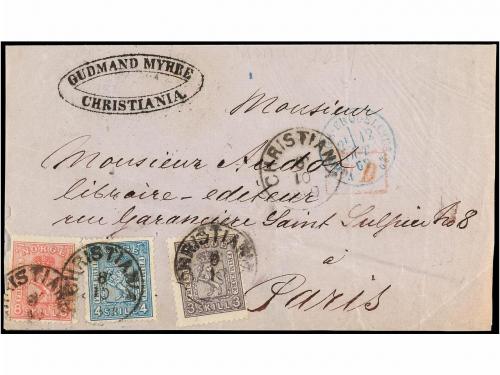 GUDMAND MYREE
CHRISTIANIA.
Monsieur
Monsieur
libraire-editeur
rue Garancière Saint Sulpice No 8
à
Paris
CHRISTIANIA
8
10
12
NORGE
8 SKILL
CHRISTIANIA
8
4 SKILL 4
CHRISTIANIA
8
3 SKILL 3